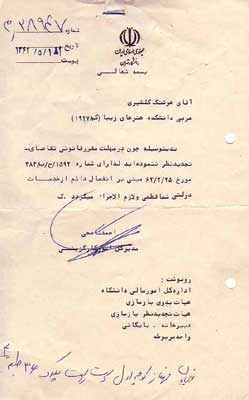 شماره ۳۸۹۴۷/م
تاریخ ۱۳۶۲/۵/۱۸
پیوست
جمهوری اسلامی ایران
دانشگاه تهران
بسمه تعالی
آقای هوشنگ گلشیری
مربی دانشکده هنرهای زیبا (کد۱۹۲۷)
بدینوسیله چون در مهلت مقرر قانونی تقاضای
تجدیدنظر ننموده‌اید لذا رای شماره ۱۵۹۲/ح/ب/۳۸۳
مورخ ۶۲/۲/۲۵ مبنی بر انفصال دائم از خدمات
دولتی شما قطعی و لازم الاجرا میگردد. ک
احمد فتاحی
مدیر کل امور کارگزینی
رونوشت:
اداره کل امور مالی دانشگاه
هیات بدوی بازسازی
هیات تجدیدنظر بازسازی
دبیرخانه - بایگانی
وامد مربوطه